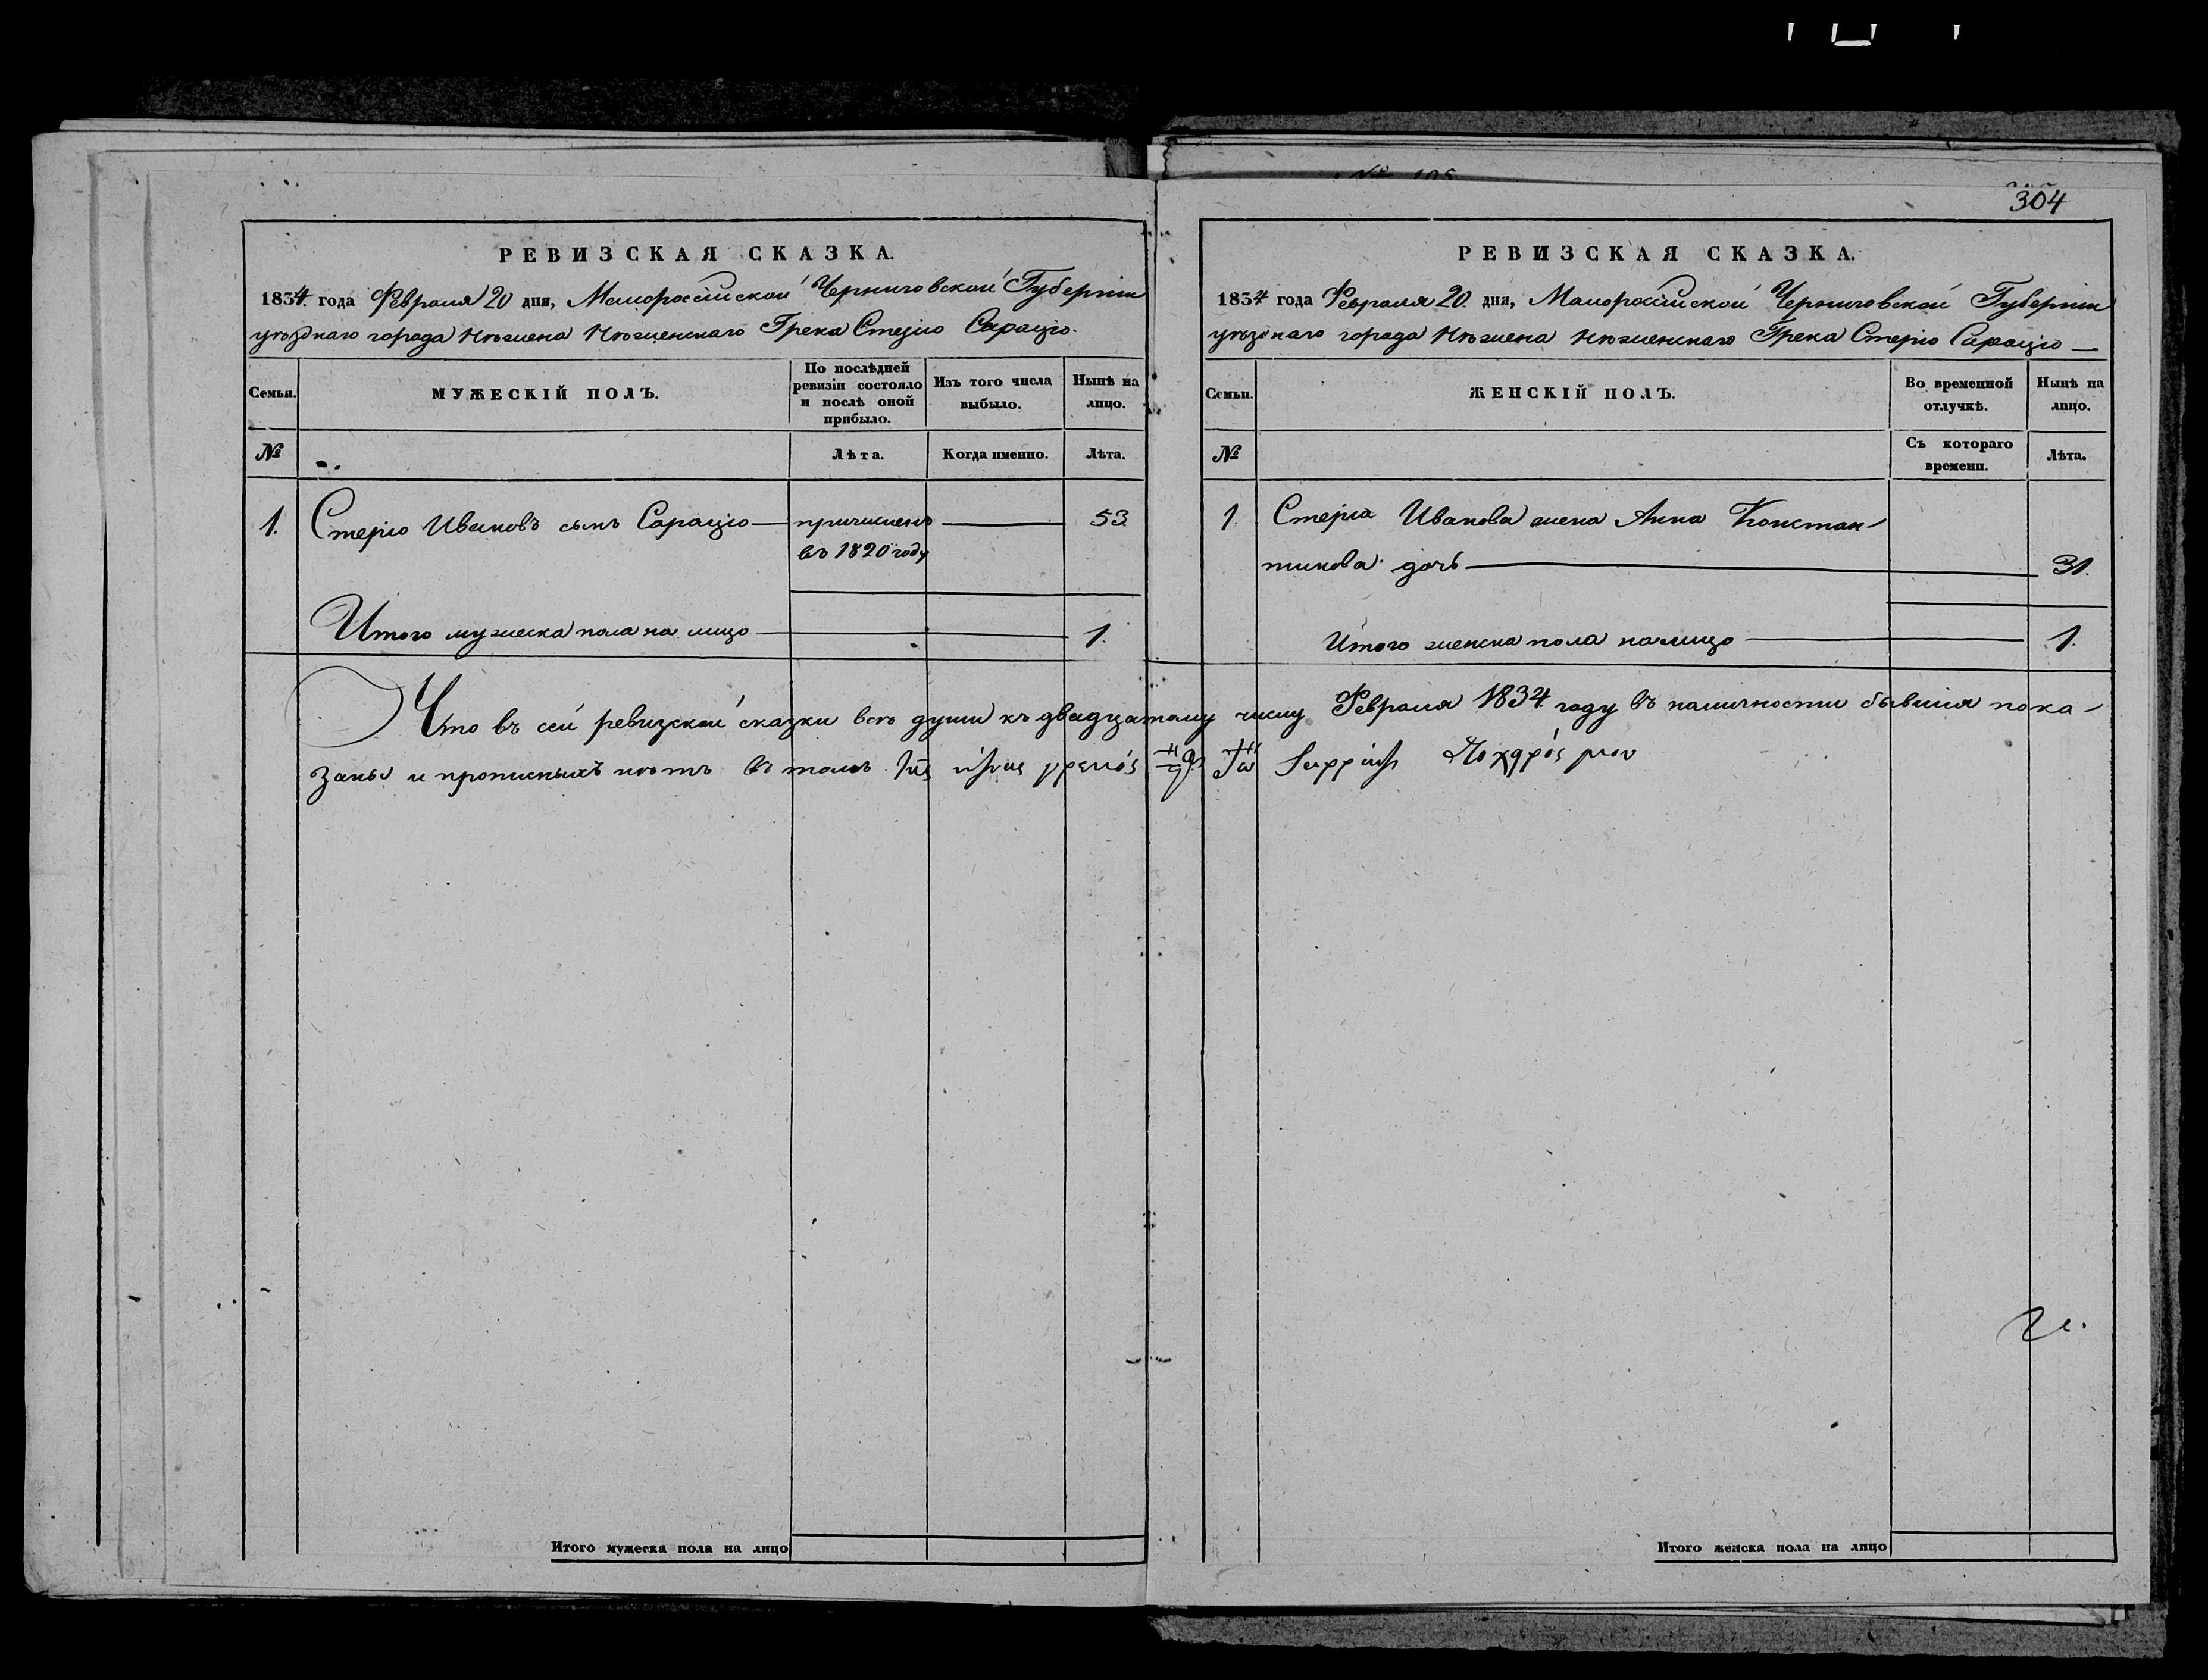 304
РЕВИЗСКАЯ СКАЗКА.
1834 года Февраля 20 дня, Малороссійской Черниговской Губерніи
уѣзднаго города Нѣжена Нѣженскаго Грека Стеріо Сараціо.
Семьи.
МУЖЕСКІЙ ПОЛЪ.
По послѣдней ревизіи состояло и послѣ оной прибыло.
Изъ того числа выбыло.
Нынѣ на лицо.
№
Лѣта.
Когда именно.
Лѣта.
1. Стеріо Ивановъ сынъ Сараціо — причисленъ — 53.
въ 1820 году
Итого мужеска пола на лицо — 1.
РЕВИЗСКАЯ СКАЗКА.
1834 года Февраля 20. дня, Малороссійской Черниговской Губерніи
уѣзднаго города Нѣжена Нѣженскаго Грека Стеріо Сараціо —
Семьи.
ЖЕНСКІЙ ПОЛЪ.
Во временной отлучкѣ.
Нынѣ на лицо.
№
Съ котораго времени.
Лѣта.
1 Стеріа Иванова жена Анна Констан-
тинова дочь — 31.
Итого женска пола налицо — 1.
Что въ сей ревизской сказки всѣ души къ двадцатому числу Февраля 1834 году въ наличности бывшія пока-
заны и прописныхъ нѣтъ въ томъ
Итого мужеска пола на лицо
Итого женска пола на лицо